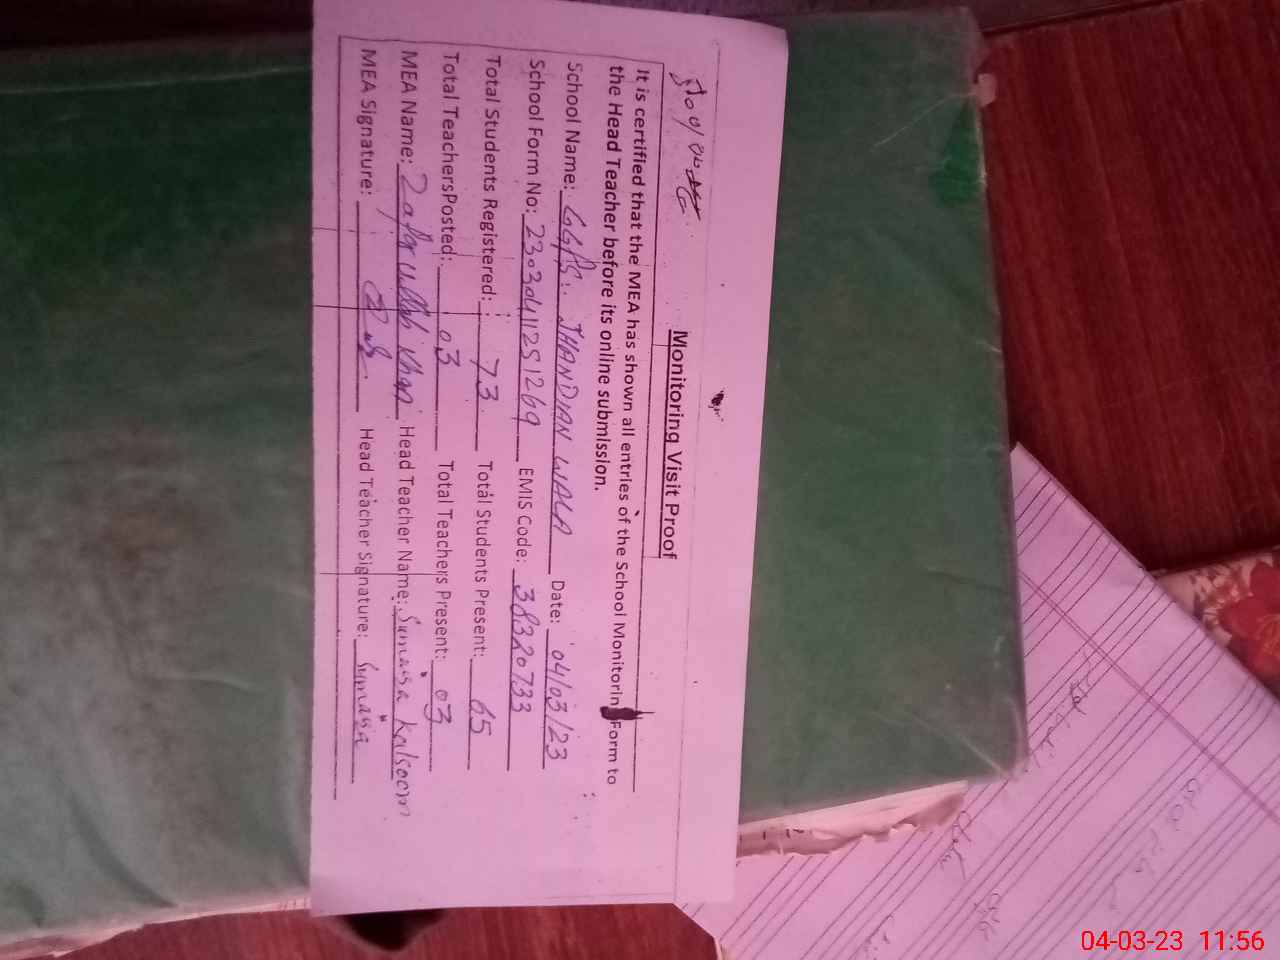 Monitoring Visit Proof
It is certified that the MEA has shown all entries of the School Monitorin Form to
the Head Teacher before its online submission.
School Name: GGPS. JHANDIAN WALA Date: 04/03/23
School Form No: 23030411251269 EMIS Code: 38320733
Total Students Registered: 73 Total Students Present: 65
Total TeachersPosted: 03 Total Teachers Present: 03
MEA Name: Zafar ullah Khan Head Teacher Name: Sumaisa Kalsoom
MEA Signature: Head Teacher Signature: Sumaisa
04-03-23 11:56